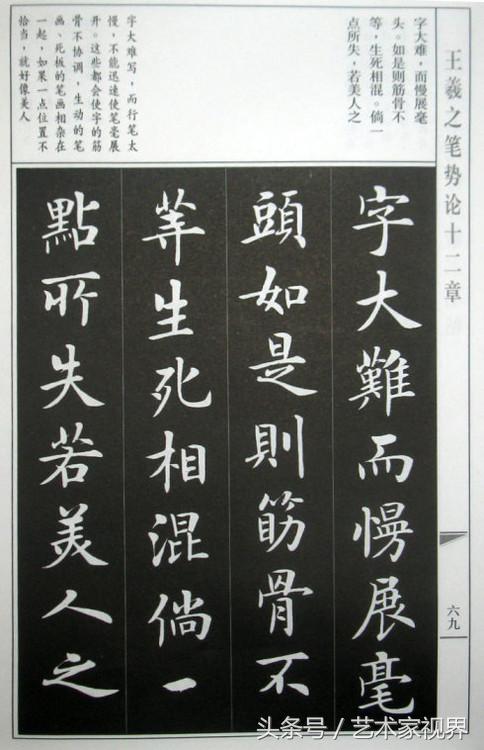 王羲之笔势论十二章
六九
字大难，而慢展毫
头。如是则筋骨不
等，生死相混。倘一
点所失，若美人之
字大难写，而行笔太
慢，不能迅速使笔毫展
开。这些都会使字的筋
骨不协调，生动的笔
画、死板的笔画相杂在
一起，如果一点位置不
恰当，就好像美人
字大難而慢展毫
頭如是則筋骨不
等生死相混倘一
點所失若美人之
头条号／艺术家视界